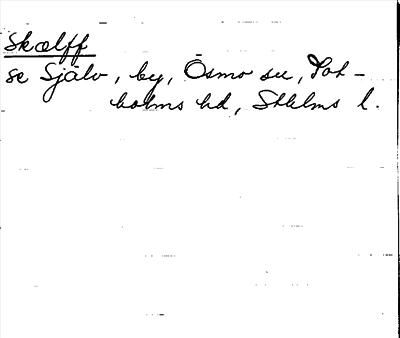 Skælff
se Själv, by, Ösmo sn, Sot-
holms hd, Sthlms l.